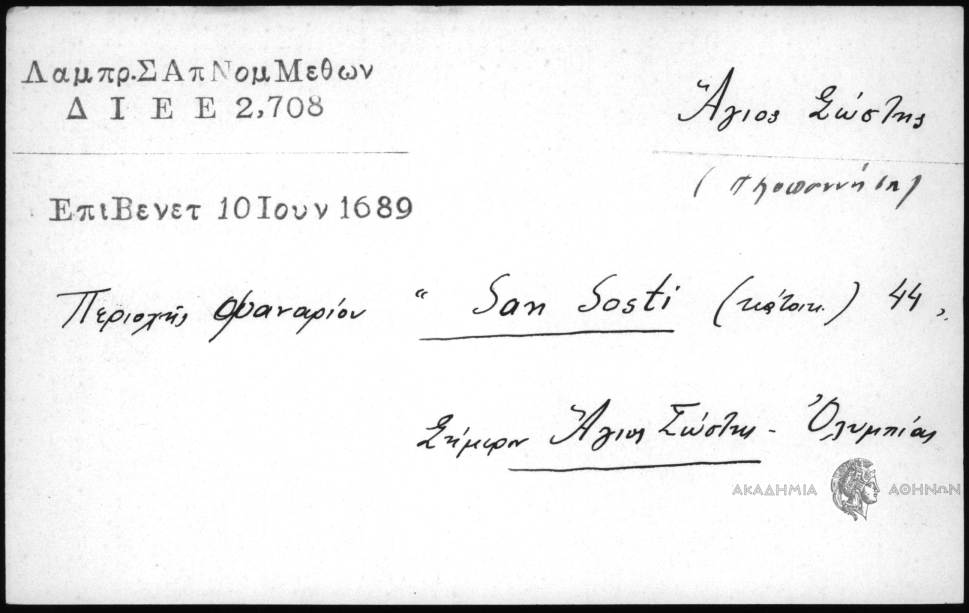 Λαμπρ.ΣΑπΝομΜεθων
Δ Ι Ε Ε 2,708
Ἅγιος Σώστης
(Πελοποννήση)
ΕπιΒενετ 10Ιουν1689
Περιοχῆς Φαναρίου " San Sosti (κάτοικ.) 44 ,
Σήμερον Ἅγιος Σώστης - Ὀλυμπίας
ΑΚΑΔΗΜΙΑ ΑΘΗΝΩΝ